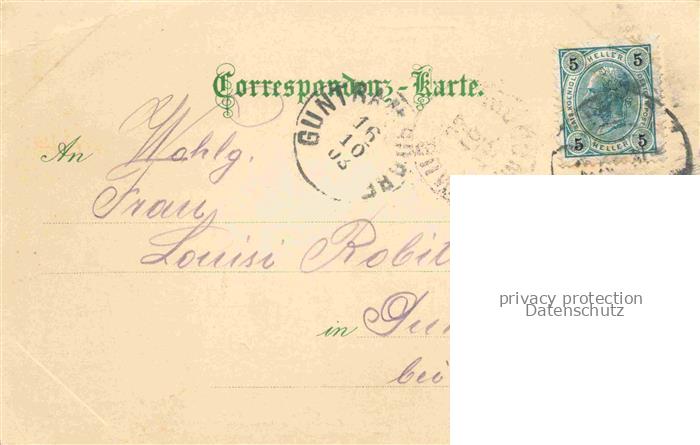 Correspondenz-Karte.
5 HELLER 5
5 HELLER 5
GUNTRAMSDORF
16
10
03
An Wohlg.
Frau
Louisi Robit
in Gun
bei
privacy protection
Datenschutz